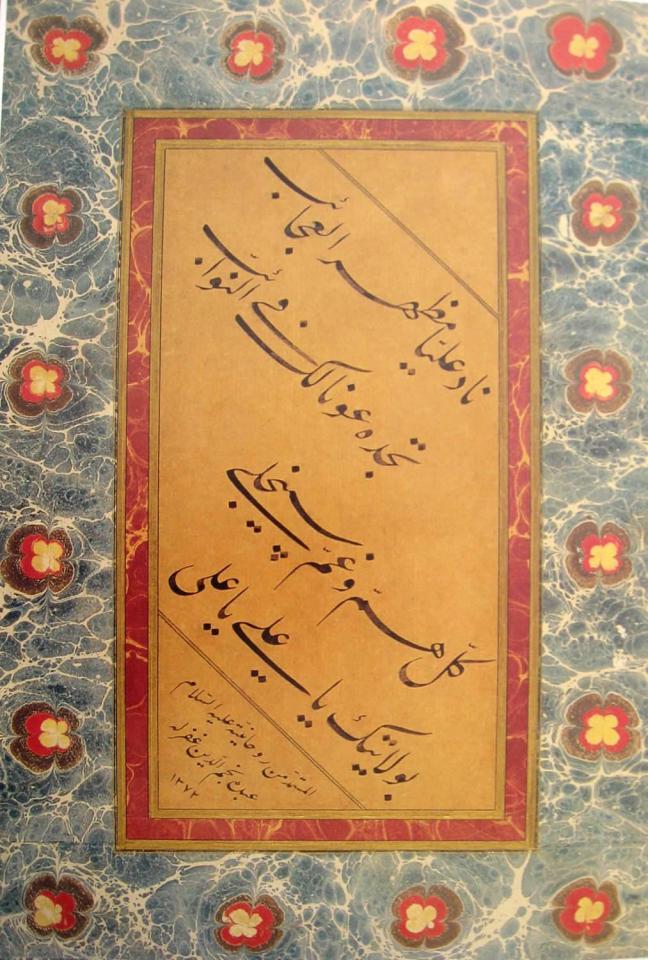 ناد عليّا مظهر العجائب
تجده عونا لك في النوائب
كلّ همّ وغمّ سينجلي
بولايتك يا علي يا علي
المستمد من روحانية عليه السّلام
عبده نجم الدين غفر له
١٣٧٢